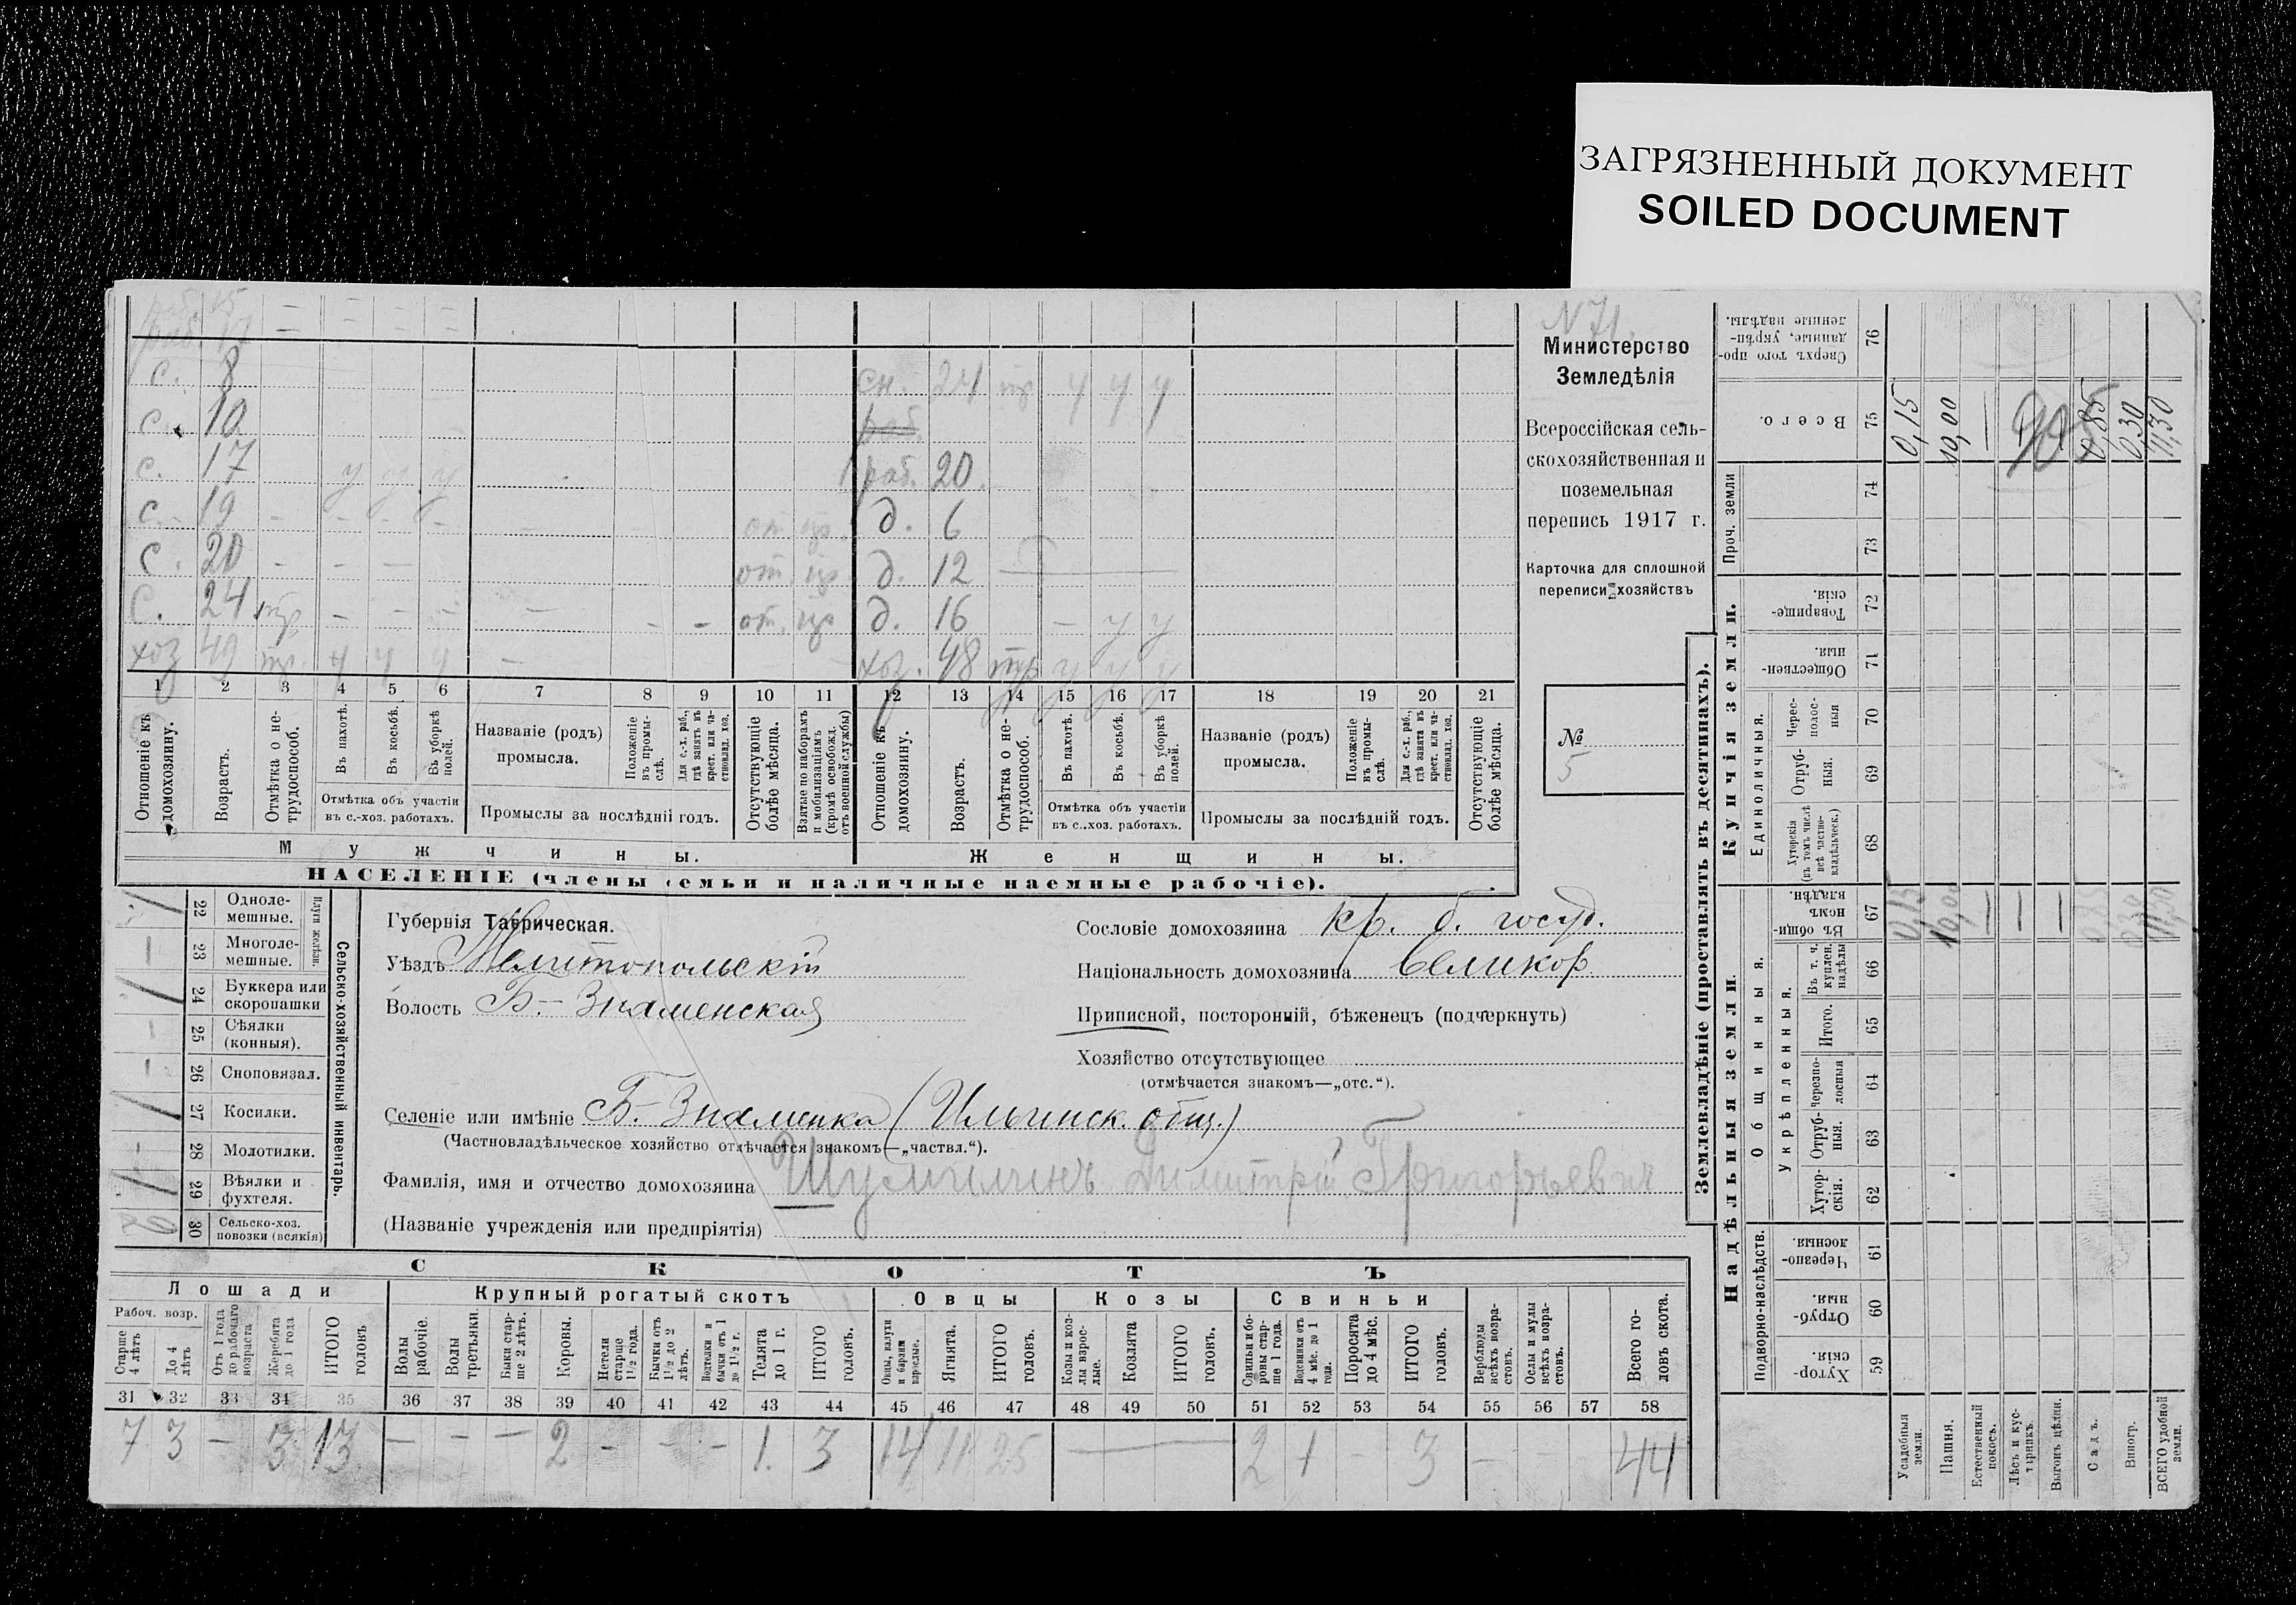 ЗАГРЯЗНЕННЫЙ ДОКУМЕНТ
SOILED DOCUMENT
N 71.
Министерство
Земледѣлія
Всероссійская сель-
скохозяйственная и
поземельная
перепись 1917 г.
Карточка для сплошной
переписи хозяйствъ
№
5
раб. 15 – – – –
17 – – – –
с. 8
с. 10
с. 17 у у у
с. 19 – – – – – от. пр.
с. 20 – – – от. пр.
с. 24 пр – – – – – – от. пр
хоз 49 пр. у у у –
сн. 24 пр у у у
раб.
раб. 20.
д. 6
д. 12
д. 16 – у у
хоз. 48 пр у у у
1 2 3 4 5 6 7 8 9 10 11 12 13 14 15 16 17 18 19 20 21
Отношеніе къ домохозяину.
Возрастъ.
Отмѣтка о не-трудоспособ.
Въ пахотѣ.
Въ косьбѣ.
Въ уборкѣ полей.
Отмѣтка объ участіи
въ с.-хоз. работахъ.
Названіе (родъ)
промысла.
Положеніе въ промы-слѣ.
Для с.-х. раб., гдѣ занятъ въ крест. или ча-стновлад. хоз.
Промыслы за послѣдній годъ.
Отсутствующіе болѣе мѣсяца.
Взятые по наборамъ и мобилизаціямъ (кромѣ освобожд. отъ военной службы)
Отношеніе къ домохозяину.
Возрастъ.
Отмѣтка о не-трудоспособ.
Въ пахотѣ.
Въ косьбѣ.
Въ уборкѣ полей.
Отмѣтка объ участіи
въ с.-хоз. работахъ.
Названіе (родъ)
промысла.
Положеніе въ промы-слѣ.
Для с.-х. раб., гдѣ занята въ крест. или ча-стновлад. хоз.
Промыслы за послѣдній годъ.
Отсутствующіе болѣе мѣсяца.
Мужчины.
Женщины.
НАСЕЛЕНІЕ (члены семьи и наличные наемные рабочіе).
Сельско-хозяйственный инвентарь.
Плуги желѣзн.
1 22 Одноле-мешные.
– 23 Многоле-мешные.
1 24 Буккера или скоропашки
– 25 Сѣялки (конныя).
– 26 Сноповязал.
1 27 Косилки.
– 28 Молотилки.
1 29 Вѣялки и фухтеля.
30 Сельско-хоз. повозки (всякія)
Губернія Таврическая.
Уѣздъ Мелитопольскій
Волость Б-Знаменская
Сословіе домохозяина кр. б. госуд.
Національность домохозяина великор.
Приписной, посторонній, бѣженецъ (подчеркнуть)
Хозяйство отсутствующее
(отмѣчается знакомъ—„отс.“).
Селеніе или имѣніе Б-Знаменка (Ильинск. общ.)
(Частновладѣльческое хозяйство отмѣчается знакомъ—„частвл.“).
Фамилія, имя и отчество домохозяина Шумилинъ Димитрій Григорьевич
(Названіе учрежденія или предпріятія)
СКОТЪ
Лошади
Крупный рогатый скотъ
Овцы
Козы
Свиньи
Рабоч. возр.
Старше 4 лѣтъ
До 4 лѣтъ
Отъ 1 года до рабочаго возраста
Жеребята до 1 года
ИТОГО головъ
Волы рабочіе.
Волы третьяки.
Быки стар-ше 2 лѣтъ.
Коровы.
Нетели старше 1½ года.
Бычки отъ 1½ до 2 лѣтъ.
Подтелки и бычки отъ 1 до 1½ г.
Телята до 1 г.
ИТОГО головъ.
Овцы, валухи и бараны взрослые.
Ягнята.
ИТОГО головъ.
Козы и коз-лы взрос-лые.
Козлята
ИТОГО головъ.
Свиньи и бо-ровы стар-ше 1 года.
Подсвинки отъ 4 мѣс. до 1 года.
Поросята до 4 мѣс.
ИТОГО головъ.
Верблюды всѣхъ возра-стовъ.
Ослы и мулы всѣхъ возра-стовъ.
Всего го-ловъ скота.
31 32 33 34 35 36 37 38 39 40 41 42 43 44 45 46 47 48 49 50 51 52 53 54 55 56 57 58
7 3 – 3 13 – – – 2 – – – 1. 3 14 11 25 — 2 1 – 3 – – 44
Землевладѣніе (проставлять въ десятинахъ).
Купчія земли.
Надѣльныя земли.
Сверхъ того про-данные, укрѣп-ленные надѣлы. 76
Всего. 75
Проч. земли 74 73
Товарище-скія. 72
Обществен-ныя. 71
Единоличныя.
Черес-полос-ныя 70
Отруб-ныя. 69
Хуторскія (въ томъ числѣ всѣ частно-владѣльческ.) 68
Общинныя.
Въ общи-номъ владѣн. 67
Укрѣпленныя.
Въ т. ч. куплен. надѣлы 66
Итого. 65
Черезпо-лосныя 64
Отруб-ныя. 63
Хутор-скія. 62
Подворно-наслѣдств.
Черезпо-лосныя. 61
Отруб-ныя. 60
Хутор-скія. 59
Усадебныя земли.
Пашня.
Естественный покосъ.
Лѣсъ и кус-тарникъ.
Выгонъ цѣлин.
Садъ.
Виногр.
ВСЕГО удобной земли.
0,15 10,00 — 0,85 0,30 11,30
0,15 10,00 — — — 0,85 0,30 11,30